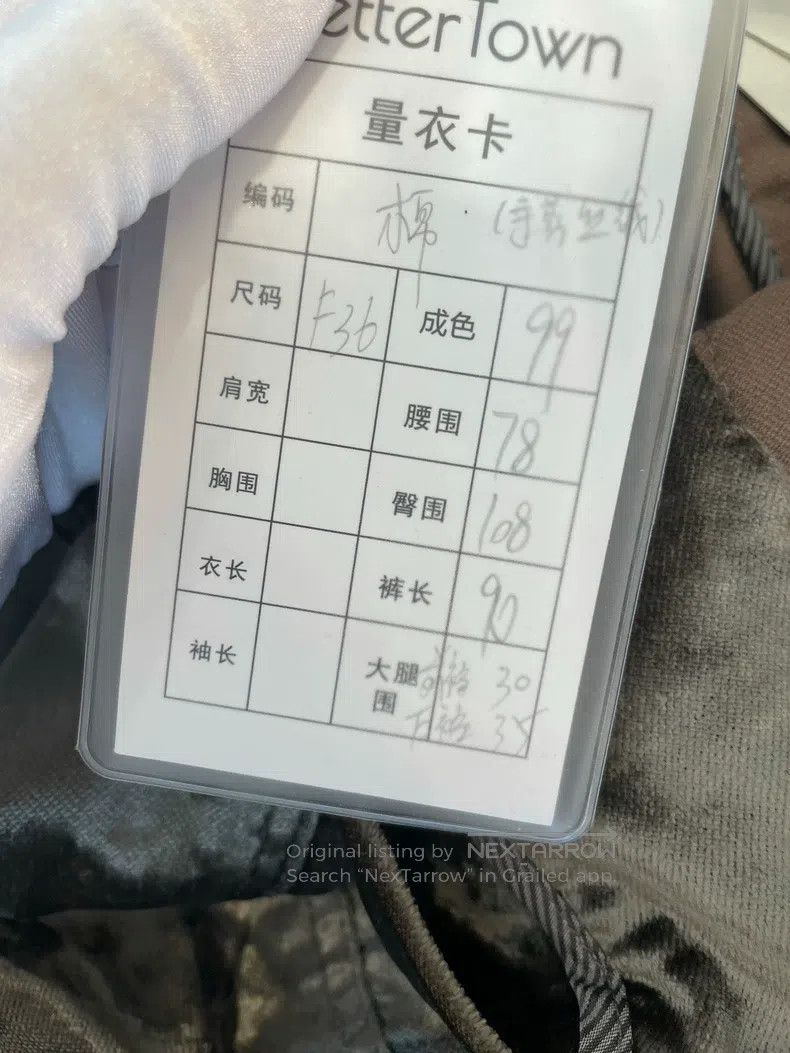 etterTown
量衣卡
编码 棉 · (手剪丝绒)
尺码 F36 成色 99
肩宽 腰围 78
胸围 臀围 108
衣长 裤长 90
袖长 大腿围 前裆 30
下裆 35
Original listing by NEXTARROW
Search “NexTarrow” in Grailed app.